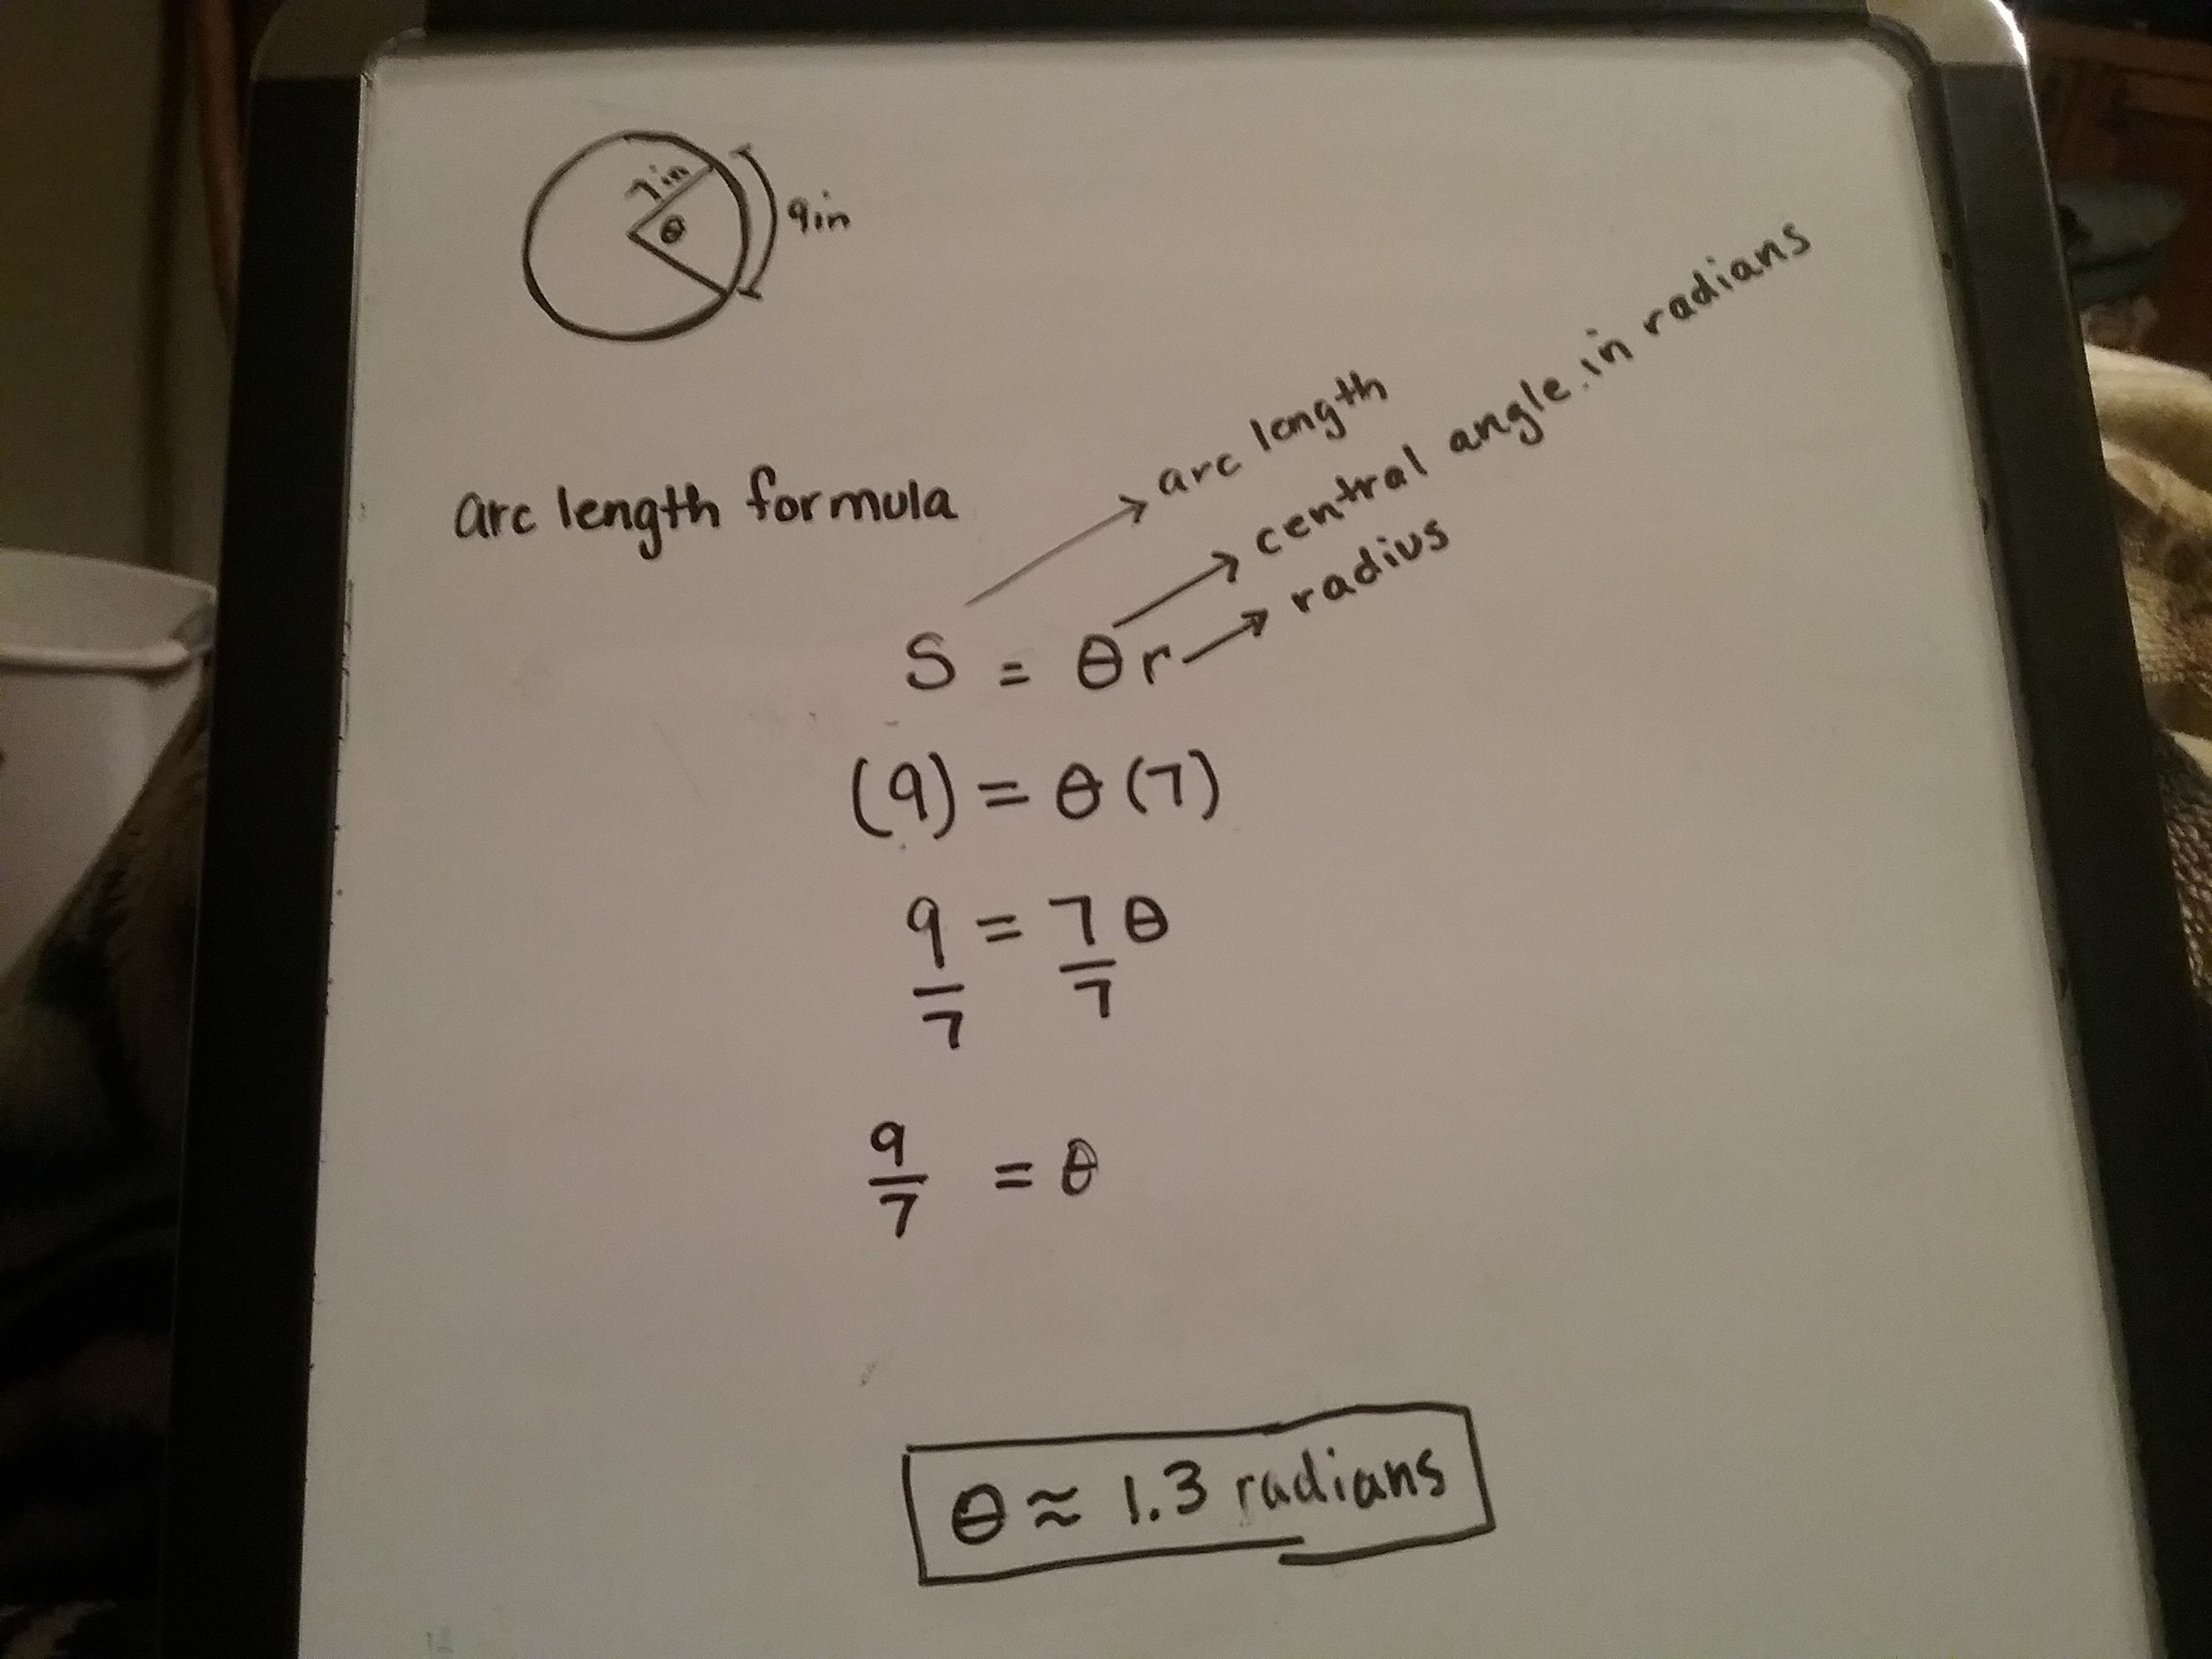 7in
θ
9in
arc length formula
arc length
central angle in radians
radius
S = θr
(9) = θ(7)
9 = 7θ
7 7
9
7 = θ
θ ≈ 1.3 radians